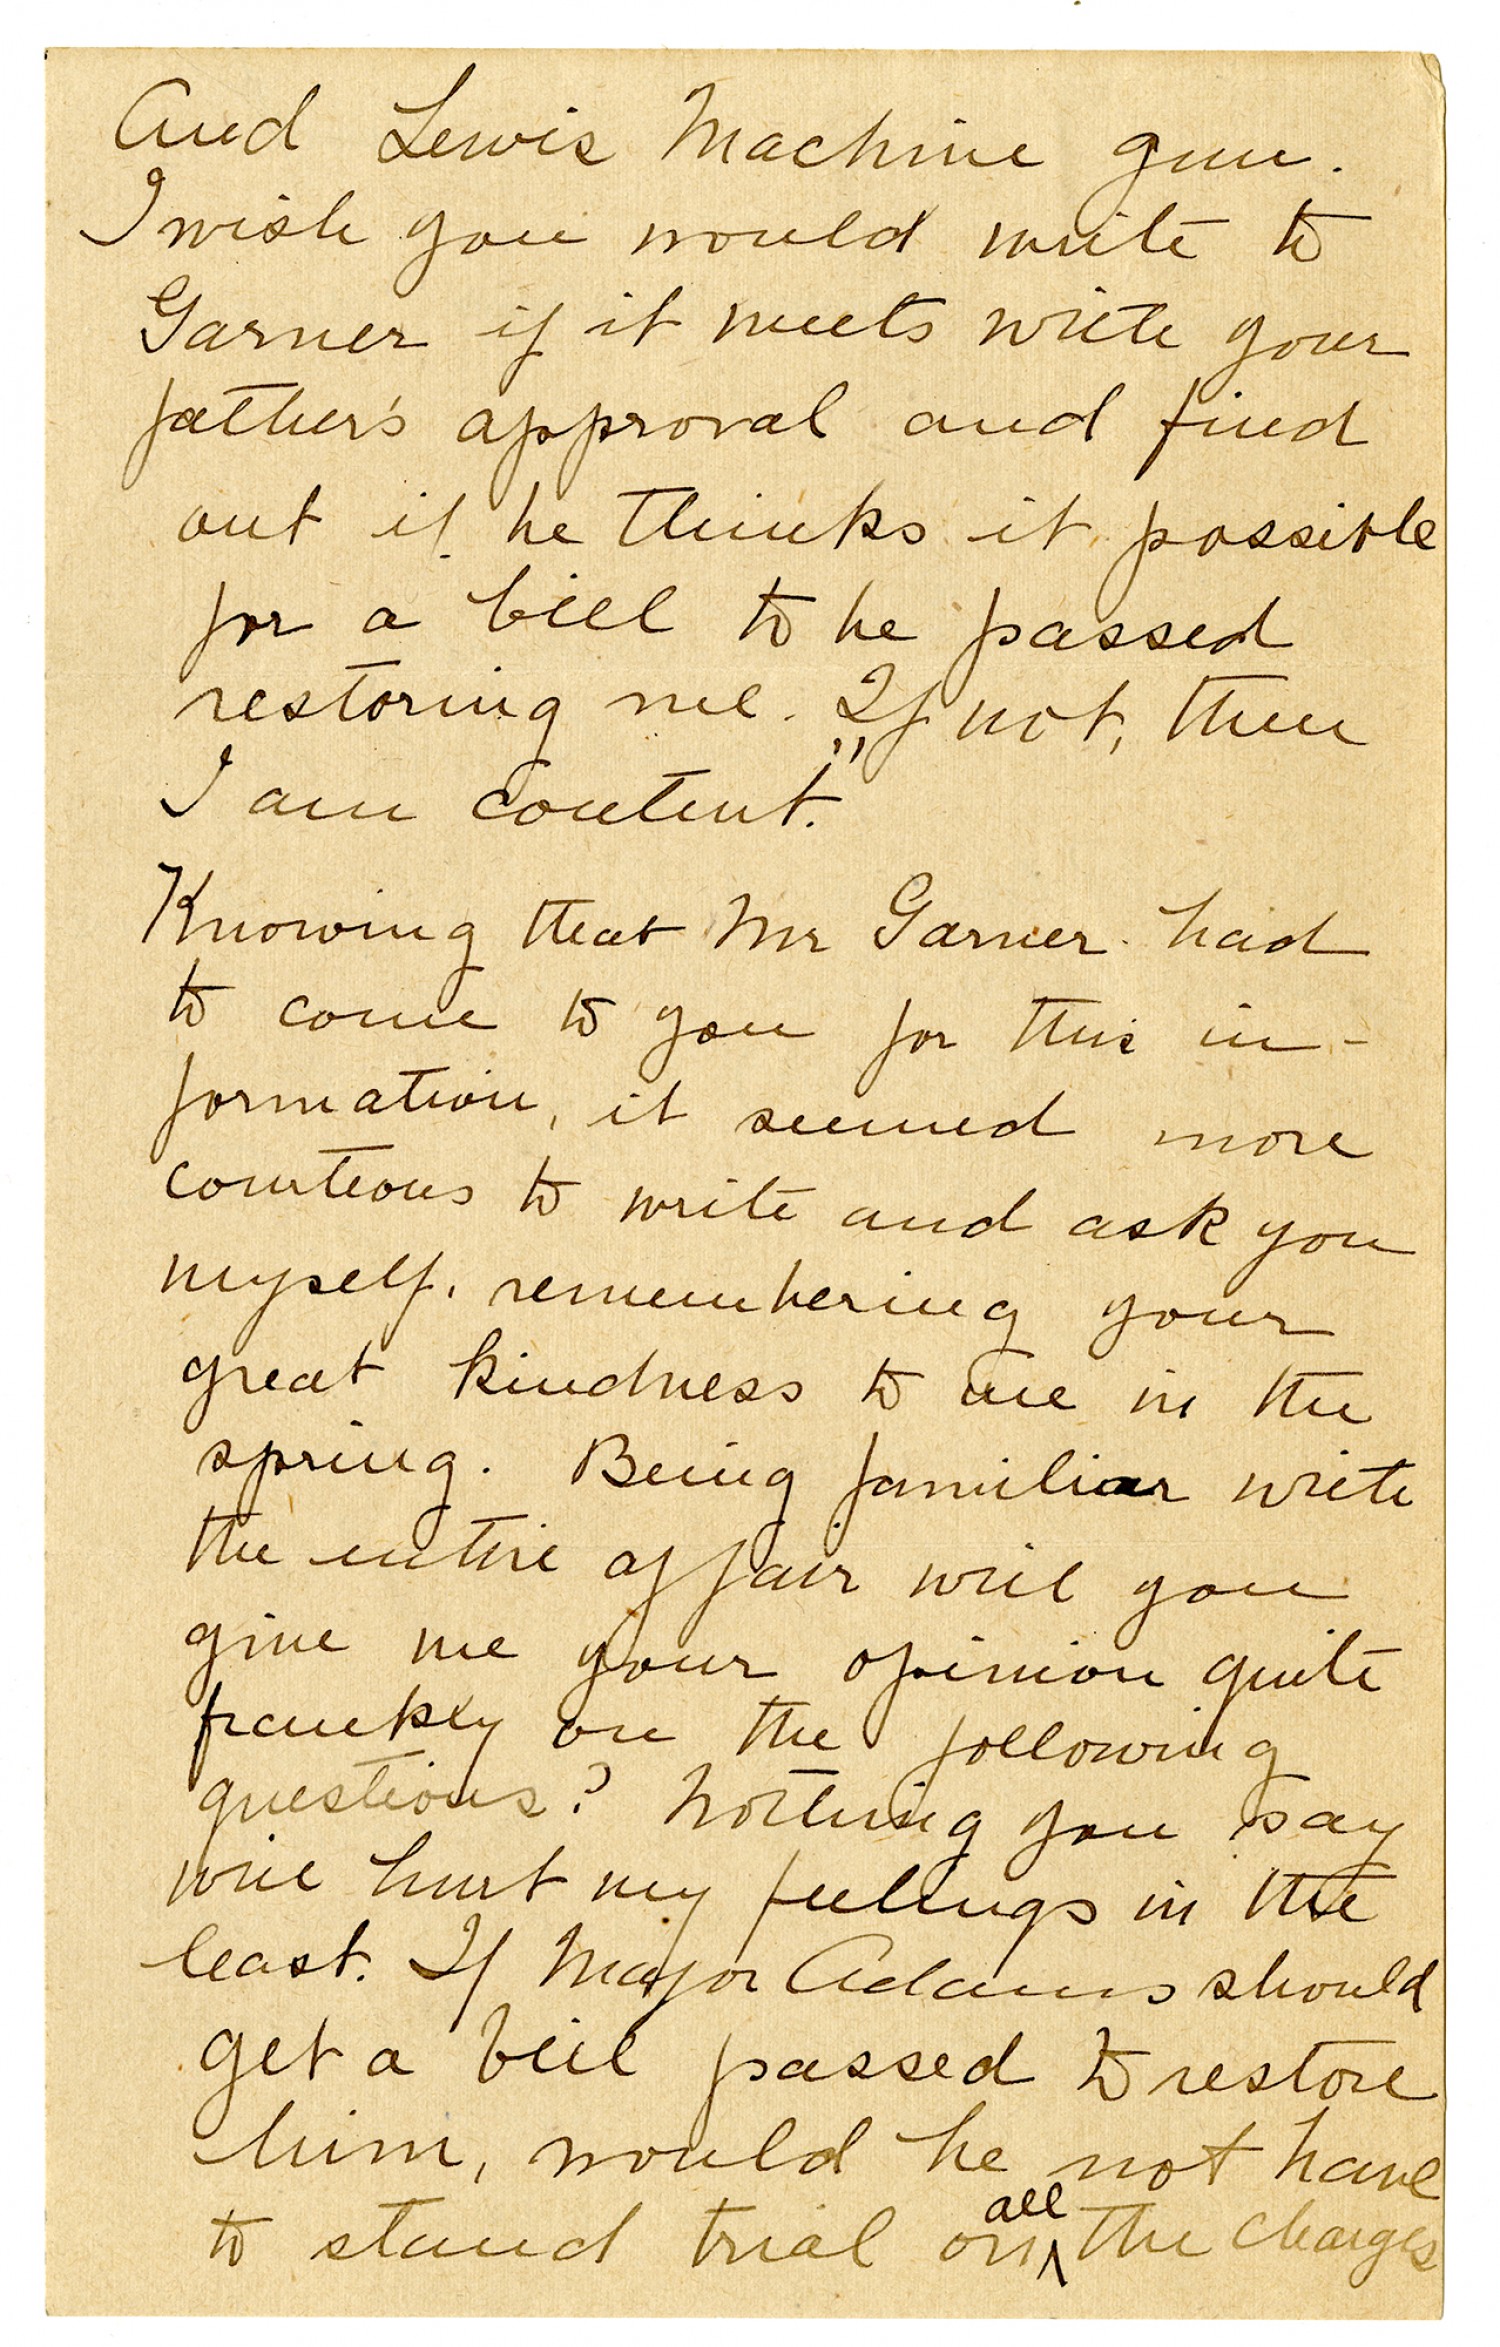 And Lewis Machine gun.
I wish you would write to
Garner if it meets with your
father's approval and find
out if he thinks it possible
for a bill to be passed
restoring me. "If not, then
I am content."
Knowing that Mr Garner had
to come to you for this in-
formation, it seemed more
courteous to write and ask you
myself, remembering your
great kindness to me in the
spring. Being familiar with
the entire affair will you
give me your opinion quite
frankly on the following
questions? Nothing you say
will hurt my feelings in the
least. If Major Adams should
get a bill passed to restore
him, would he not have
to stand trial on all the charges